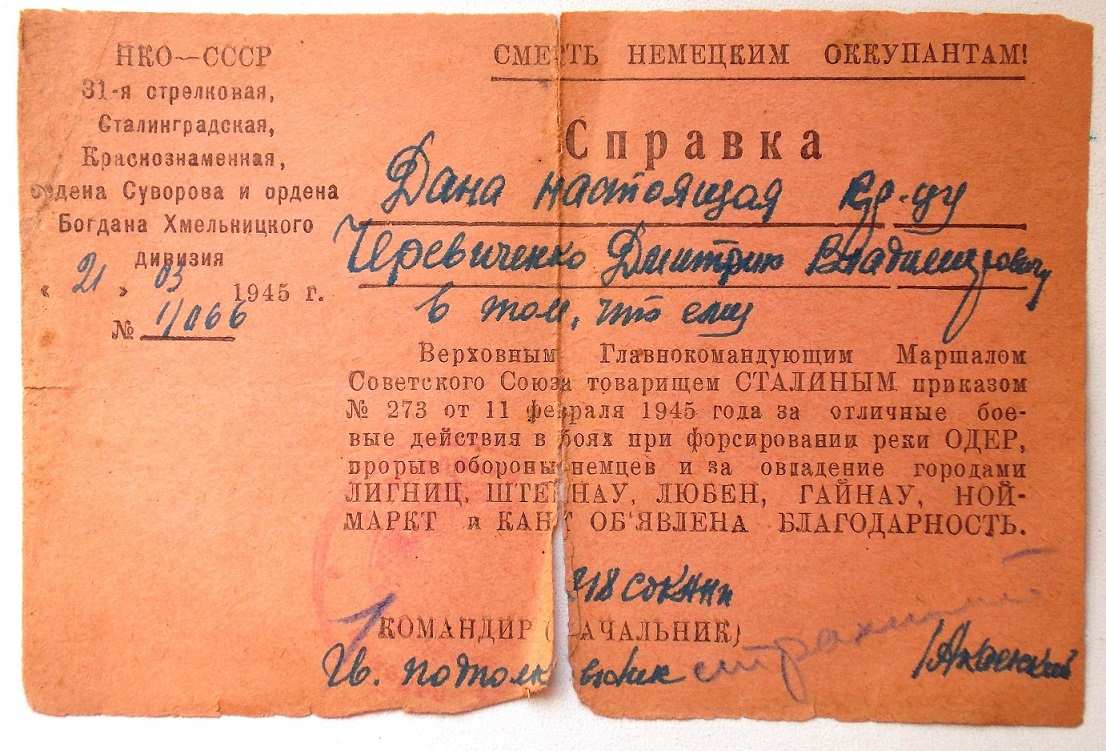 НКО—СССР
31-я стрелковая,
Сталинградская,
Краснознаменная,
ордена Суворова и ордена
Богдана Хмельницкого
дивизия
« 21 » 03 1945 г.
№ 1/066
СМЕРТЬ НЕМЕЦКИМ ОККУПАНТАМ!
Справка
Дана настоящая кр-цу
Черевиченко Дмитрию Владимировичу
в том, что ему
Верховным Главнокомандующим Маршалом
Советского Союза товарищем СТАЛИНЫМ приказом
№ 273 от 11 февраля 1945 года за отличные бое-
вые действия в боях при форсировании реки ОДЕР,
прорыв обороны немцев и за овладение городами
ЛИГНИЦ, ШТЕЙНАУ, ЛЮБЕН, ГАЙНАУ, НОЙ-
МАРКТ и КАНТ ОБ'ЯВЛЕНА БЛАГОДАРНОСТЬ.
КОМАНДИР (НАЧАЛЬНИК)
Гв. подполковник